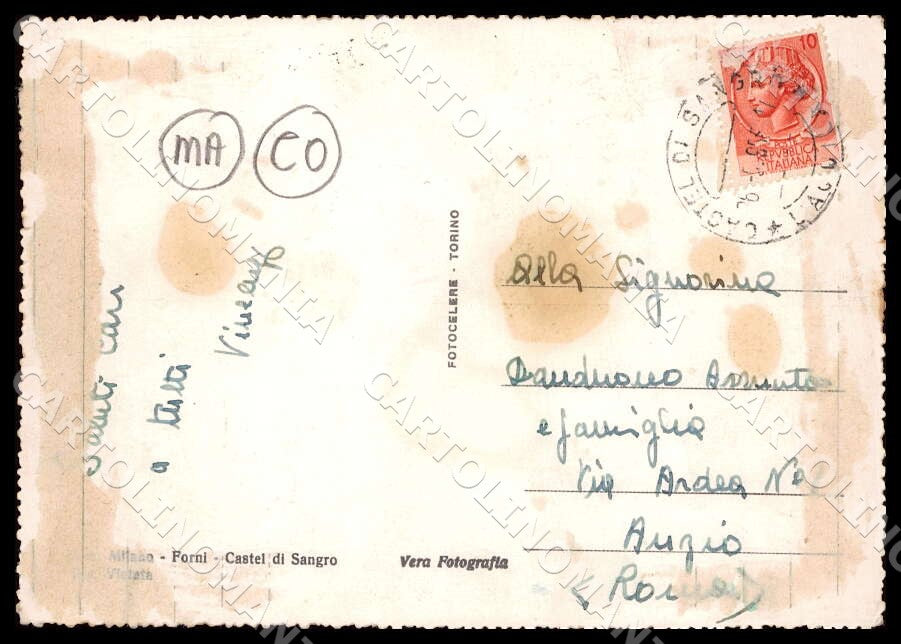 MA CO
Saluti cari
a tutti
Vincenzo
FOTOCELERE - TORINO
10
POSTE
REPUBBLICA
ITALIANA
CASTEL DI SANGRO
Alla Signorina
Assunta
e famiglia
Via Ardea No
Anzio
(Roma)
Milano - Forni - Castel di Sangro
Vietata
Vera Fotografia
CARTOLINOMANIA